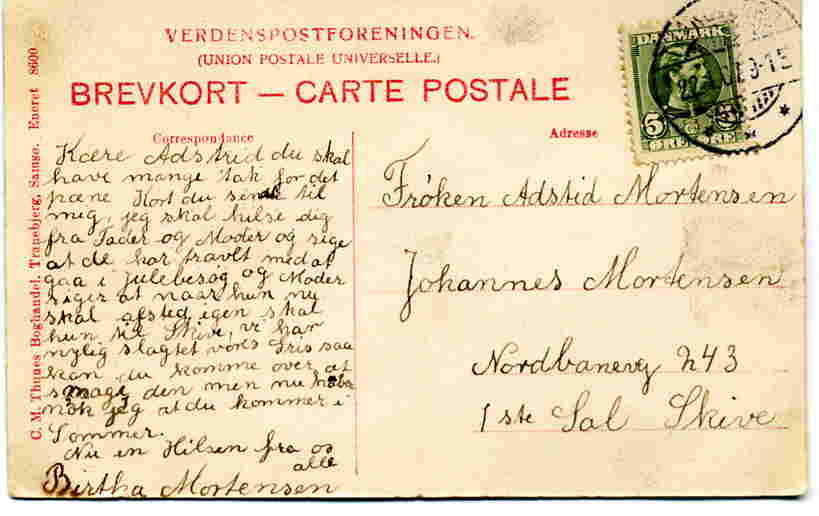 VERDENSPOSTFORENINGEN.
(UNION POSTALE UNIVERSELLE.)
BREVKORT — CARTE POSTALE
C. M. Thunes Boghandel, Tranebjerg, Samsø. Eneret 8600
Correspondance
Kære Adstrid du skal
have mange tak for det
pæne Kort du sende til
mig, jeg skal hilse dig
fra Fader og Moder og sige
at de har travlt med at
gaa i Julebesøg og Moder
siger at naar hun nu
skal afsted igen skal
hun til Skive, vi har
nylig slagtet vores Gris saa
kan du komme over at
smage den men nu haaber
nok jeg at du kommer i
Sommer.
Nu en Hilsen fra os
alle
Birtha Mortensen
Adresse
Frøken Adstid Mortensen
Johannes Mortensen
Nordbanevej 43
1 ste Sal Skive
DANMARK
5
ØRE